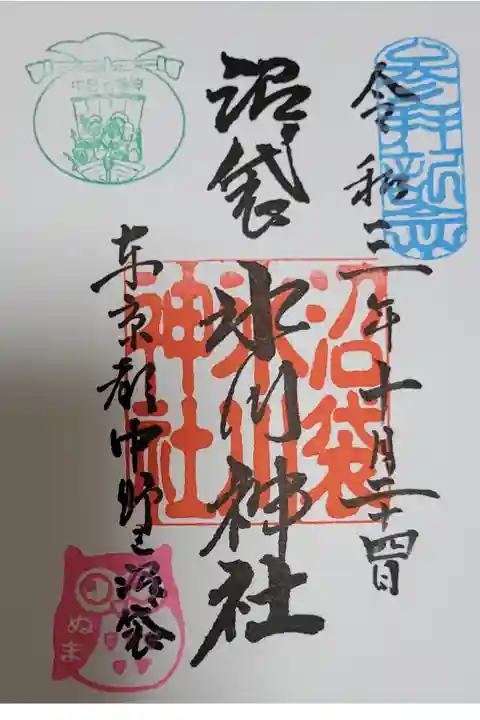 参拝記念
令和三年十月二十四日
沼袋
氷川神社
沼袋
氷川
神社
東京都中野区沼袋
ぬま